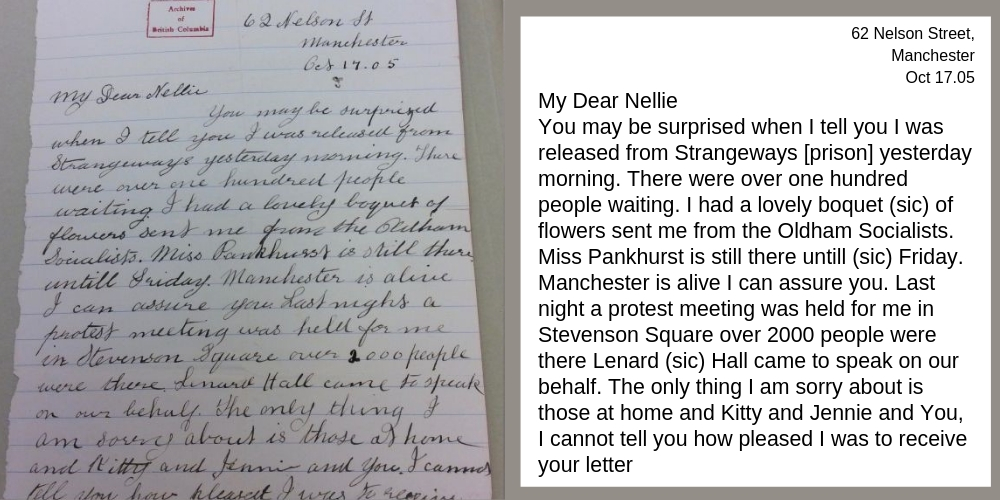 Archives
of
British Columbia
62 Nelson St
Manchester
Oct 17.05
My Dear Nellie
You may be surprized
when I tell you I was released from
Strangeways yesterday morning. There
were over one hundred people
waiting I had a lovely boquet of
flowers sent me from the Oldham
Socialists. Miss Pankhurst is still there
untill Friday. Manchester is alive
I can assure you. Last night a
protest meeting was held for me
in Stevenson Square over 2000 people
were there Lenard Hall came to speak
on our behalf. The only thing I
am sorry about is those at home
and Kitty and Jennie and You. I cannot
tell you how pleased I was to receive
62 Nelson Street,
Manchester
Oct 17.05
My Dear Nellie
You may be surprised when I tell you I was
released from Strangeways [prison] yesterday
morning. There were over one hundred
people waiting. I had a lovely boquet (sic) of
flowers sent me from the Oldham Socialists.
Miss Pankhurst is still there untill (sic) Friday.
Manchester is alive I can assure you. Last
night a protest meeting was held for me in
Stevenson Square over 2000 people were
there Lenard (sic) Hall came to speak on our
behalf. The only thing I am sorry about is
those at home and Kitty and Jennie and You,
I cannot tell you how pleased I was to receive
your letter